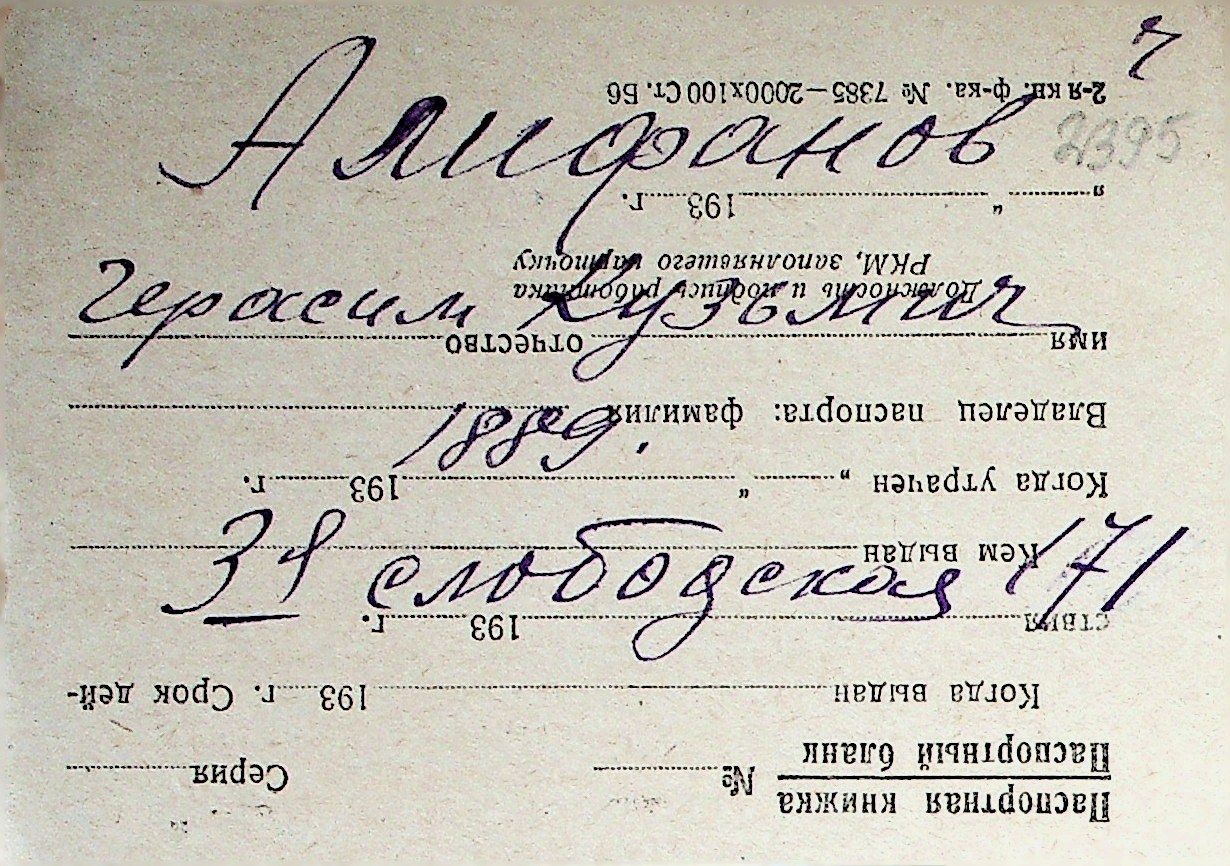 Алифанов
2395
Герасим Кузьмич
1889.
3я слободская 171
Паспортная книжка
Паспортный бланк
№ Серия
Когда выдан 193 г. Срок дей-
ствия 193 г.
Кем выдан
Когда утрачен „ “ 193 г.
Владелец паспорта: фамилия
имя отчество
Должность и подпись работника
РКМ, заполнявшего карточку
„ “ 193 г.
2-я кн. ф-ка. № 7385—2000х100 Ст. Б6